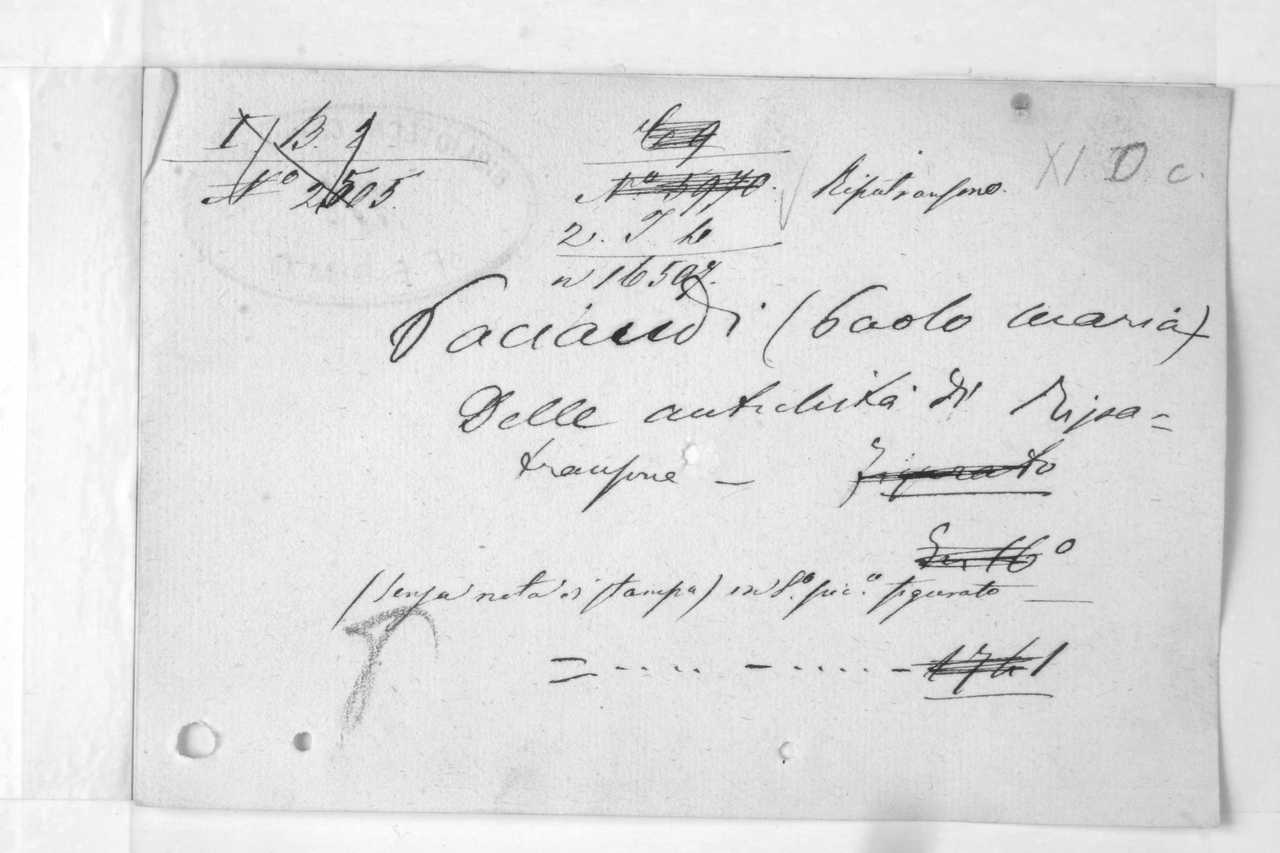 I B. 9
N.o 2505
N.o 5970.
2. T. 4
n 16597.
Ripatransone.
XI D c.
Paciaudi (Paolo Maria)
Delle antichità di Ripa=
transone — Figurato
In 16o
(senza nota di stampa) in 8.o picc.o figurato —
= - - - - - - - - - 1741